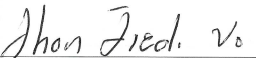 Jhon Fred. Vo